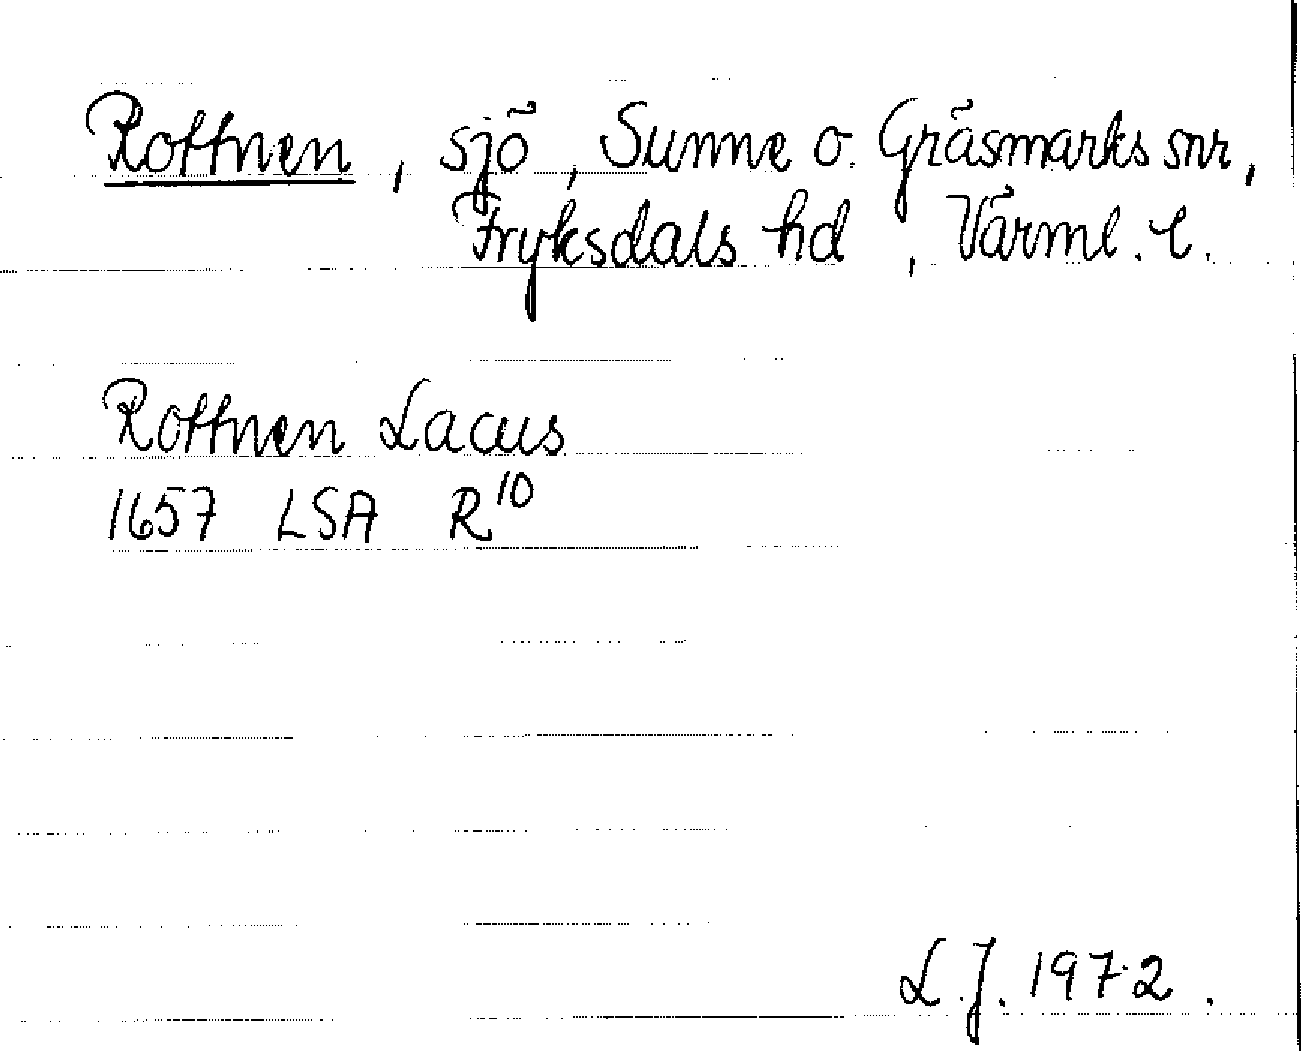 Rottnen, sjö, Sunne o. Gräsmarks snr,
Fryksdals hd, Värml. l.
Rottnen Lacus
1657 LSA R¹⁰
L.J. 1972.